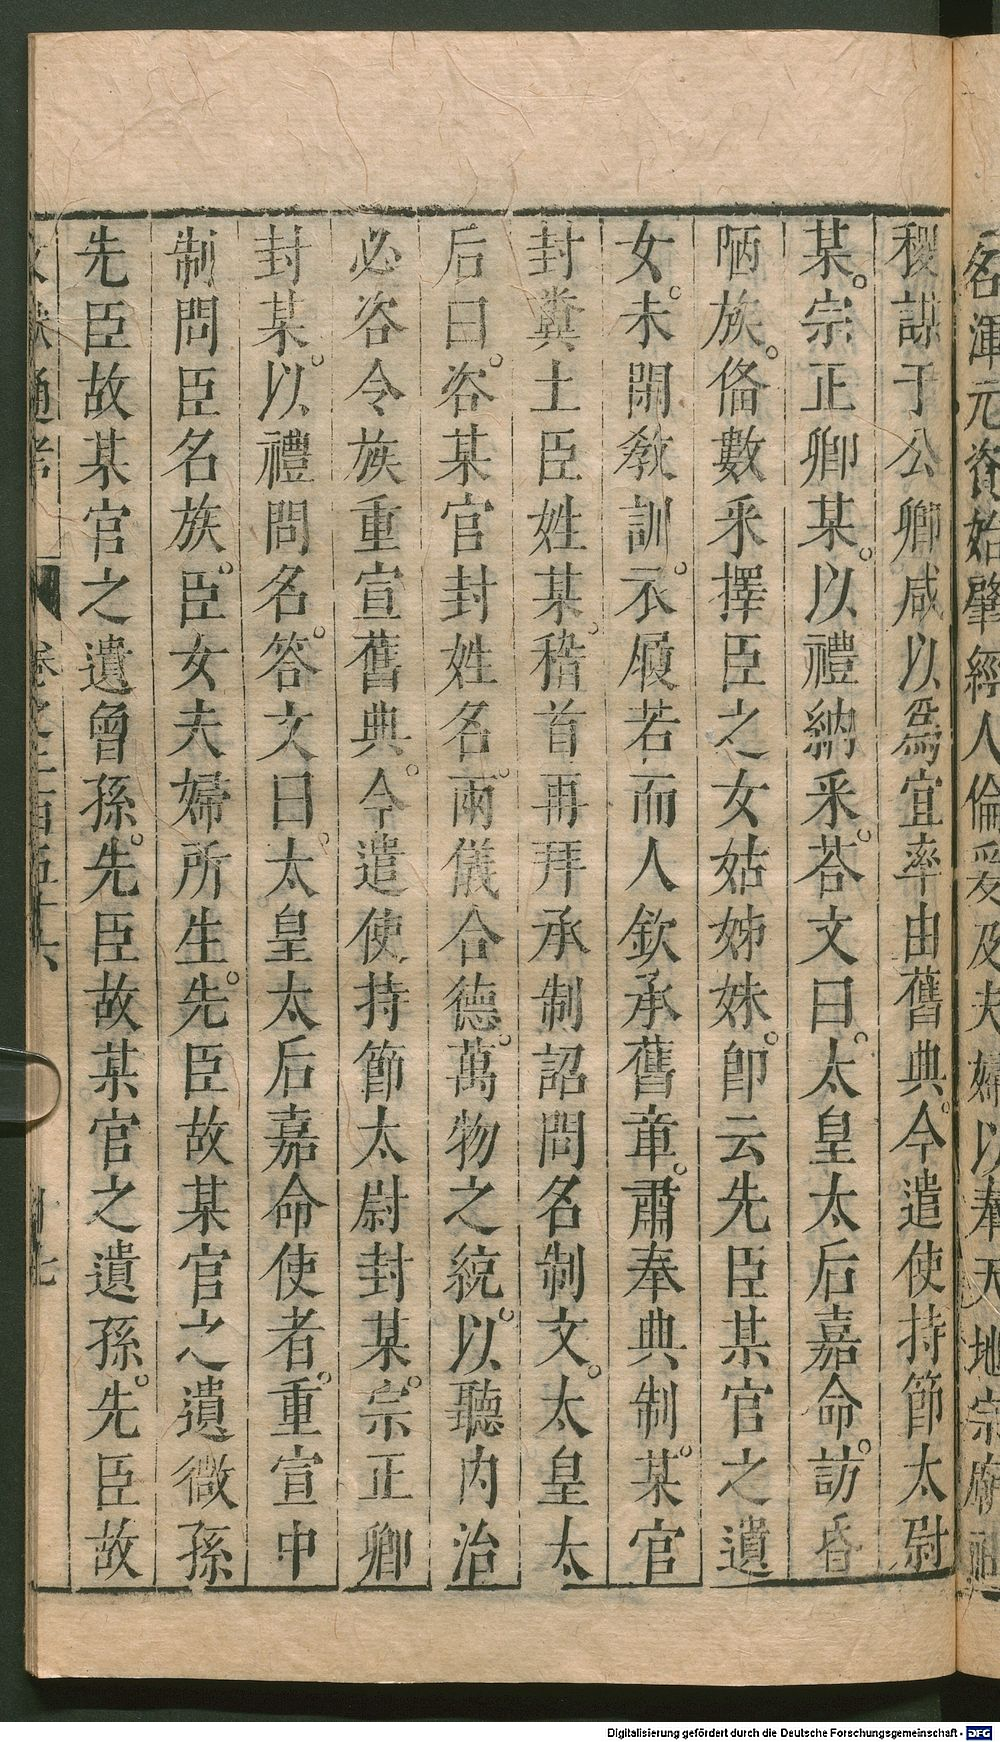 咨渾元資始肇經人倫爰及夫婦以奉天地宗廟社
稷謀于公卿咸以爲宜率由舊典。今遣使持節太尉
某。宗正卿某。以禮納采。荅文曰。太皇太后嘉命。訪昏
陋族。俻數采擇臣之女姑姊妹。卽云先臣某官之遺
女。未閑敎訓。衣履若而人欽承舊章。肅奉典制。某官
封糞土臣姓某。稽首再拜承制詔問名制文。太皇太
后曰。咨某官封姓名。兩儀合德。萬物之統。以聽内治
必咨令族重宣舊典。今遣使持節太尉封某。宗正卿
封某。以禮問名。答文曰。太皇太后嘉命使者。重宣中
制問臣名族。臣女夫婦所生。先臣故某官之遺微孫
先臣故某官之遺曾孫。先臣故某官之遺孫。先臣故
Digitalisierung gefördert durch die Deutsche Forschungsgemeinschaft - DFG